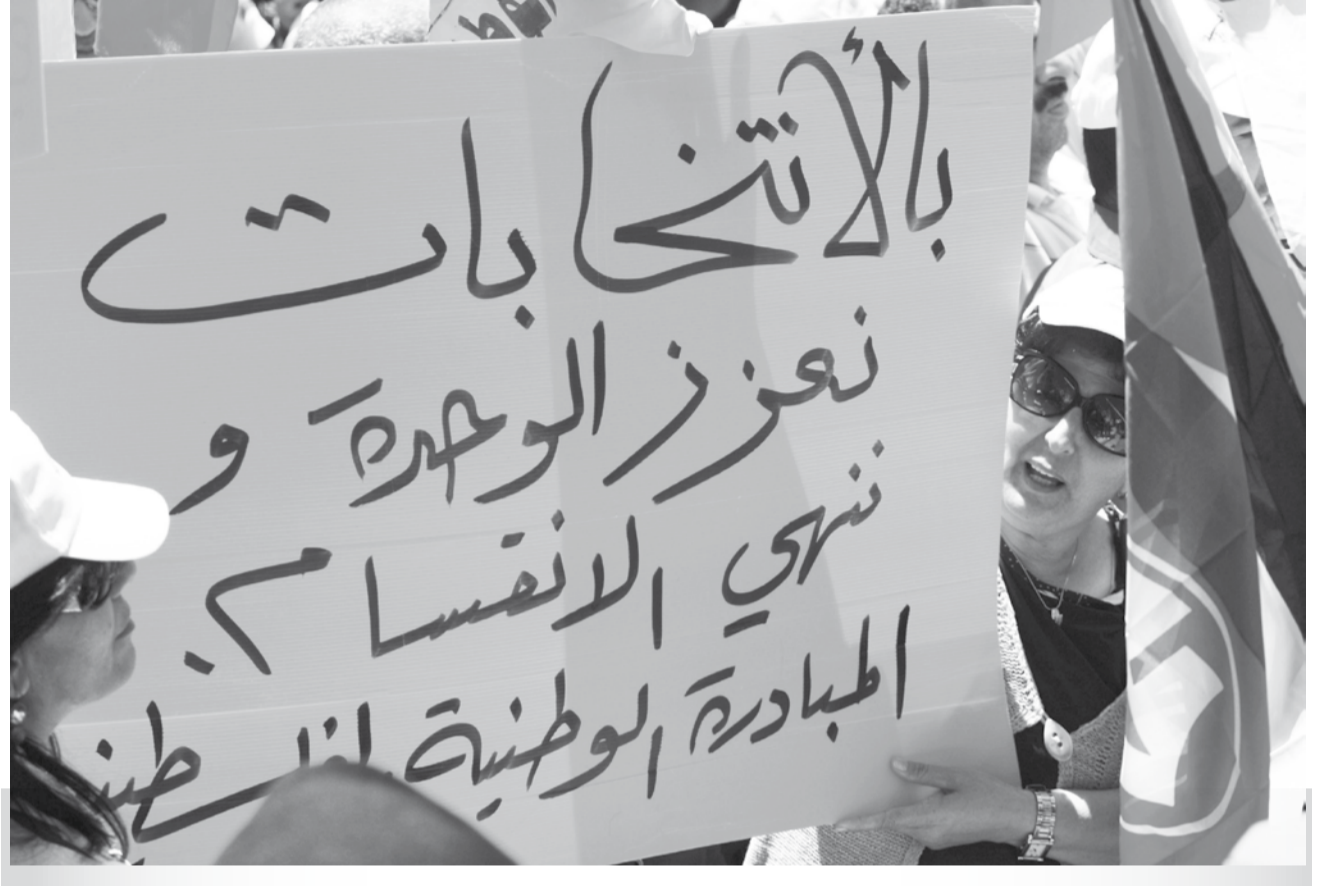 بالأنتخابات
نعزز الوحدة و
ننهي الانقسام.
المبادرة الوطنية